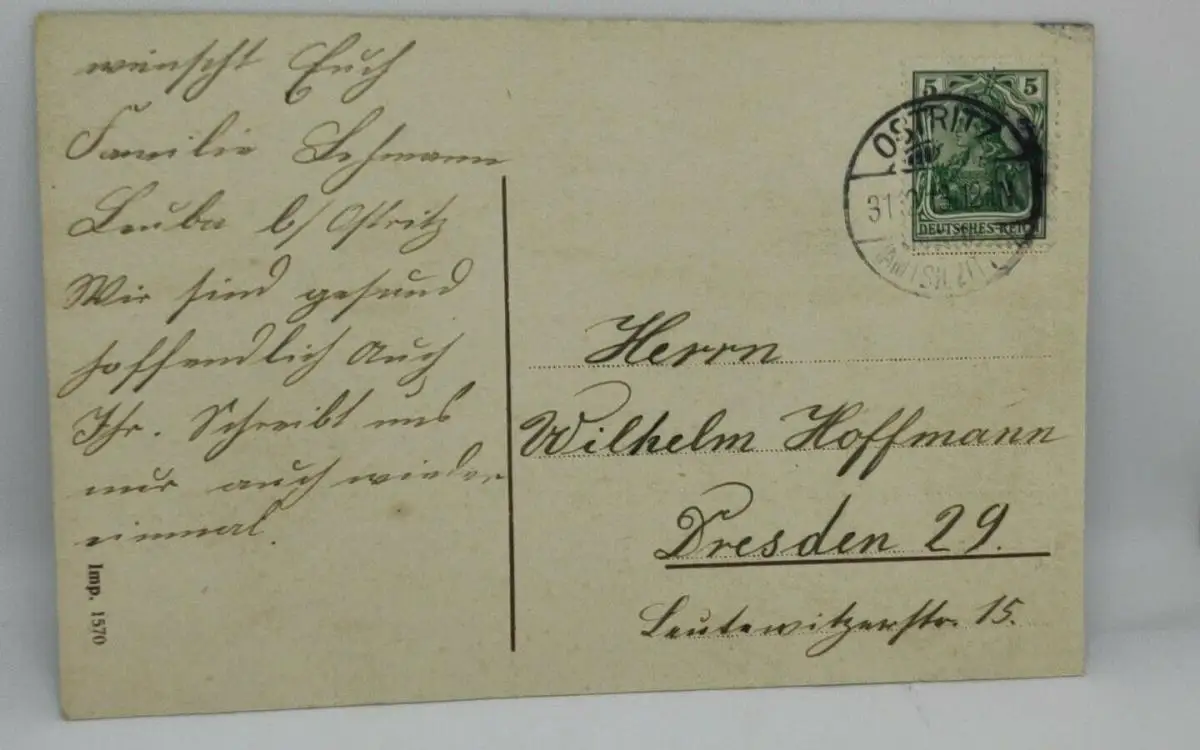 wünscht Euch
Familie Lehmann
Leuba b/ Ostritz
Wir sind gesund
hoffendlich auch
Ihr. Schreibt uns
nur auch wieder
einmal.
Imp. 1570
5 5
DEUTSCHES REICH
OSTRITZ
31
12
Herrn
Wilhelm Hoffmann
Dresden 29.
Leutewitzerstr. 15.